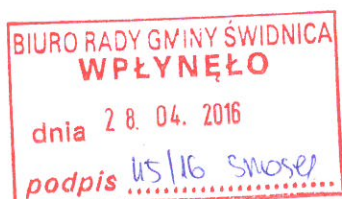 BIURO RADY GMINY ŚWIDNICA
WPŁYNĘŁO
dnia 28. 04. 2016
podpis 45/16